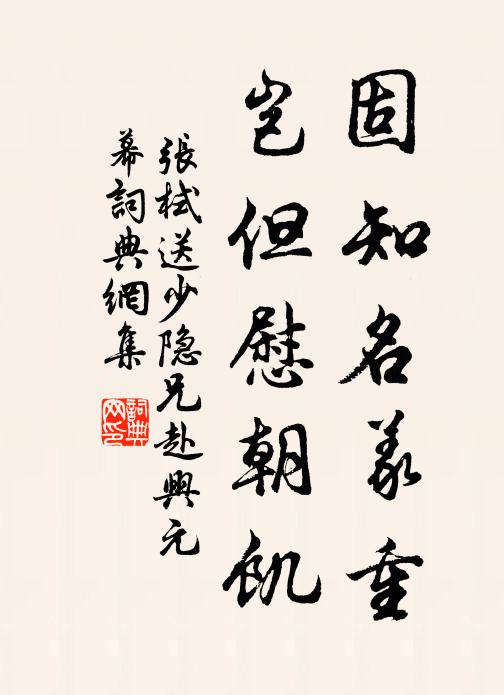 固知名义重
岂但慰朝飢
張栻送少隐兄赴興元
幕詞典網集
詞典网印